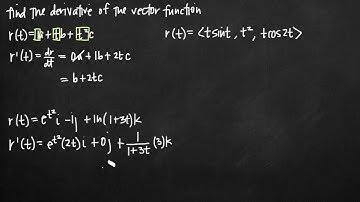 find the derivative of the vector function
r(t)=a+tb+t²c
r(t)=⟨tsint, t², tcos2t⟩
r'(t)=dr/dt=0a+1b+2tc
=b+2tc
r(t)=e^(t²)i-1j+ln(1+3t)k
r'(t)=e^(t²)(2t)i+0j+1/(1+3t)(3)k